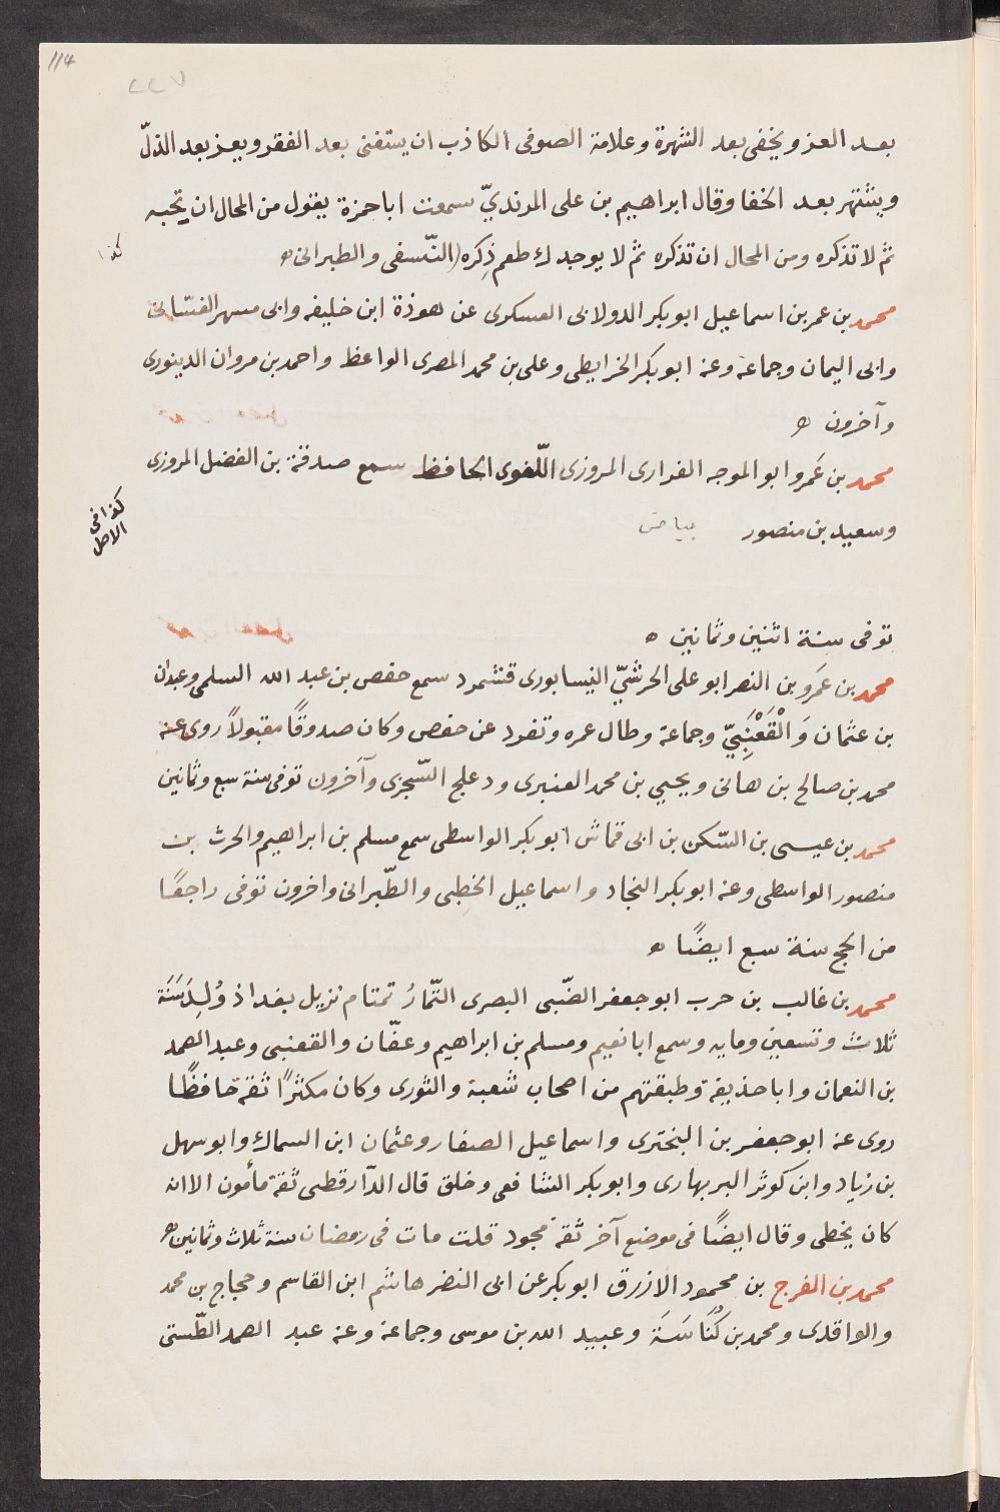 114
٢٢٧
بعد العز ويخفى بعد الشهرة وعلامة الصوفى الكاذب ان يستغنى بعد الفقر ويعز بعد الذلّ
ويشتهر بعد الخفا وقال ابراهيم بن على المرنديّ سمعت ابا حمزة يقول من المحال ان تحبه
ثم لا تذكره ومن المحال ان تذكره ثم لا يوجد لك طعم ذِكره (النّسفى والطبرانى ه
كذا
محمد بن عمر بن اسماعيل ابو بكر الدولابى العسكرى عن هوذة ابن خليفه وابى مسهر الغسّانى
وابى اليمان وجماعة وعنه ابو بكر الخرايطى وعلى بن محمد المصرى الواعظ واحمد بن مروان الدينورى
وآخرون ه
محمد بن عَمرو ابو الموجه الفرارى المروزى اللّغوى الحافظ سمع صدقة بن الفضل المروزى
كذا فى
الاصل
وسعيد بن منصور بياض
توفى سنة اثنين وثمانين ه
محمد بن عَمَرو بن النصر ابو على الحَرشىّ النيسابورى قشمرد سمع حفص بن عبد الله السلمى وعبدان
بن عثمان وَالْقَعْنَبِيّ وجماعة وطال عمره وتفرد عن حفص وكان صدوقًا مقبولاً روى عنه
محمد بن صالح بن هانى ويحيى بن محمد العنبرى ودعلج السّجزى وآخرون توفى سنة سبع وثمانين
محمد بن عيسى بن السّكن بن ابى قماش ابو بكر الواسطى سمع مسلم بن ابراهيم والحرث بن
منصور الواسطى وعنه ابو بكر النجاد واسماعيل الخطِبى والطّبرانى واخرون توفى راجعًا
من الحج سنة سبع ايضًا ه
محمد بن غالب بن حرب ابو جعفر الضّبى البصرى التّمارُ تمتام نزيل بغداذ وُلِدَ سَنَة
ثلاث وتسعين ومايه وسمع ابا نعيم ومسلم بن ابراهيم وعفّان والقعنبى وعبد الصمد
بن النعمان وابا حذيفة وطبقتهم من اصحاب شعبة والثورى وكان مكثرًا ثقة حافظًا
روى عنه ابو جعفر بن البخترى واسماعيل الصفار وعثمان ابن السماك وابو سهل
بن زياد وابن كوثر البربهارى وابو بكر الشافعى وخلق قال الدّارقطنى ثقة مأمون الا انه
كان يخطى وقال ايضًا فى موضع آخر ثقة مجود قلت مات فى رمضان سنة ثلاث وثمانين ه
محمد بن الفرج بن محمود الازرق ابو بكر عن ابى النضر هاشم ابن القاسم وحجاج بن محمد
والواقدى ومحمد بن كُنَاسَةَ وعبيد الله بن موسى وجماعة وعنه عبد الصمد الطّستى